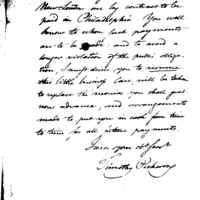 New London are by contract to be
paid in Philadelphia. You will
know to whom such payments
are to be made and to avoid a
longer violation of the public obliga-
tion, I must desire you to resume
this little business. Care will be taken
to replace the monies you shall just
now advance, and arrangements
made to put you in cash from time
to time for all future payments.
I am your obt servt
Timothy Pickering